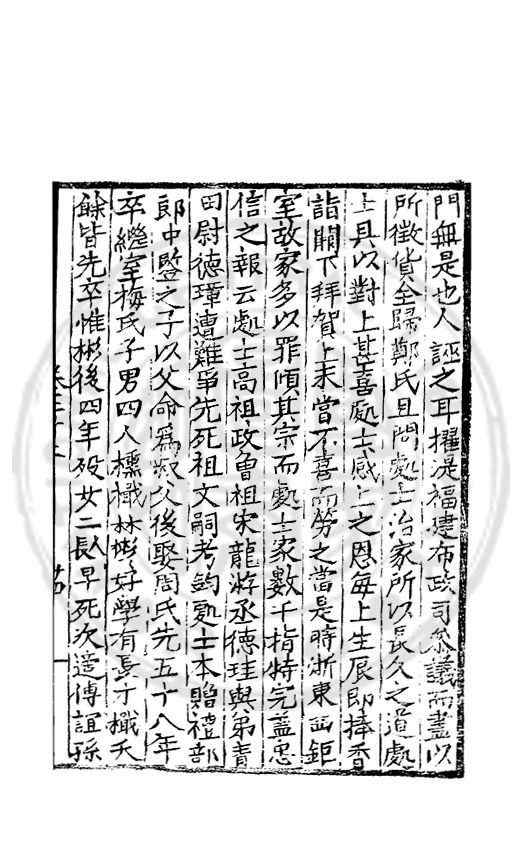 門無是也人誣之耳擢湜福建布政司叅議而盡以
所徵貨全歸鄭氏且問處士治家所以長久之道處
士具以對上甚喜處士感上之恩每上生辰即捧香
詣闕下拜賀上未嘗不喜而勞之當是時浙東西鉅
室故家多以罪傾其宗而處士家數千指特完盖忠
信之報云處士高祖政曾祖宋龍游丞德珪與弟青
田尉德璋遭難爭先死祖文嗣考鈞處士本贈禮部
郎中暨之子以父命爲叔父後娶周氏先五十八年
卒繼室梅氏子男四人櫄樴林彬好學有長才樴夭
餘皆先卒惟彬後四年歿女二長早死次適傅誼孫